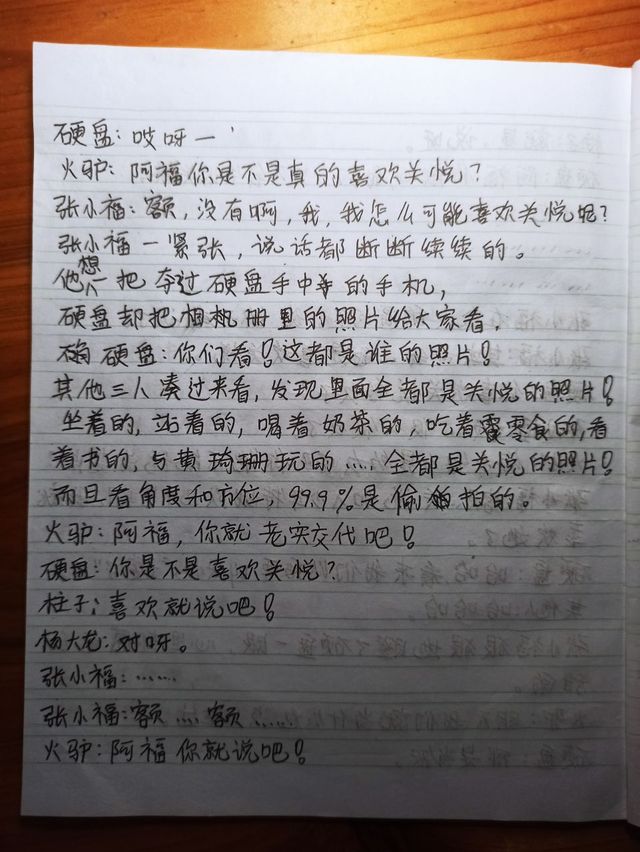 硬盘：哎呀一
火驴：阿福你是不是真的喜欢关悦？
张小福：额，没有啊，我，我怎么可能喜欢关悦呢？
张小福一紧张，说话都断断续续的。
他想一把夺过硬盘手中的手机，
硬盘却把相机册里的照片给大家看。
硬盘：你们看！这都是谁的照片！
其他三人凑过来看，发现里面全都是关悦的照片！
坐着的，站着的，喝着奶茶的，吃着零食的，看
着书的，与黄琦珊玩的……全都是关悦的照片！
而且看角度和方位，99.9%是偷拍的。
火驴：阿福，你就老实交代吧！
硬盘：你是不是喜欢关悦？
柱子：喜欢就说吧！
杨大龙：对呀。
张小福：……
张小福：额……额……
火驴：阿福你就说吧！